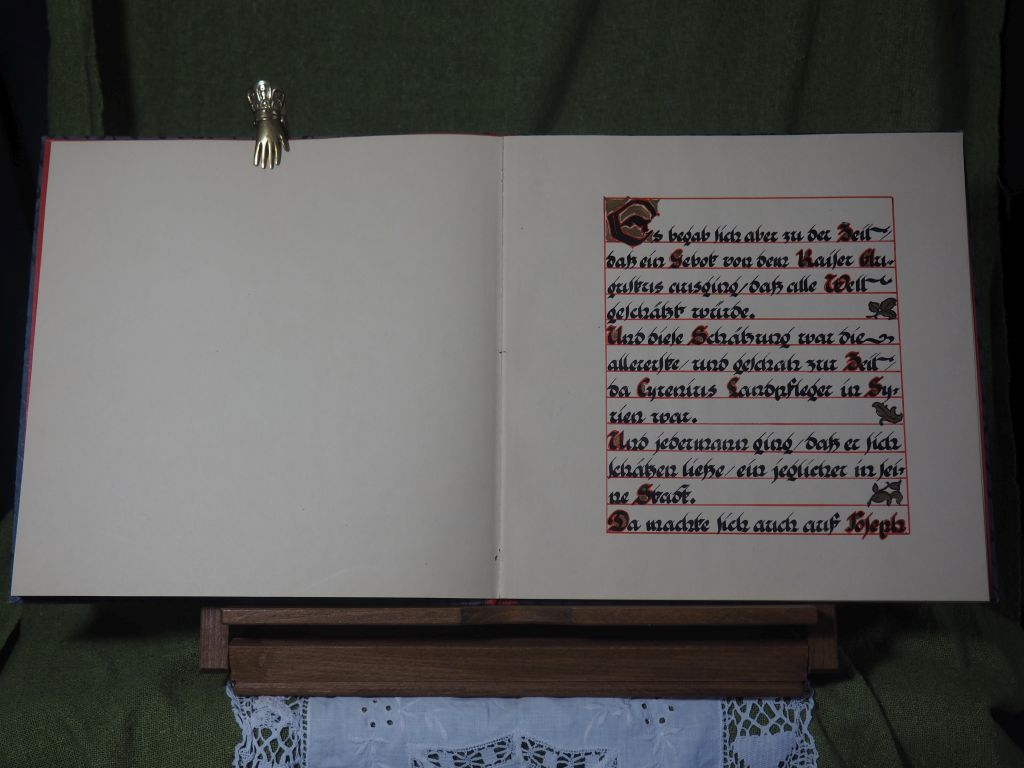 Es begab sich aber zu der Zeit
daß ein Gebot von dem Kaiser Au-
gustus ausging/daß alle Welt
geschätzt würde.
Und diese Schätzung war die
allererste/und geschah zur Zeit
da Cyrenius Landpfleger in Sy-
rien war.
Und jedermann ging/daß er sich
schätzen ließe/ein jeglicher in sei-
ne Stadt.
Da machte sich auch auf Joseph